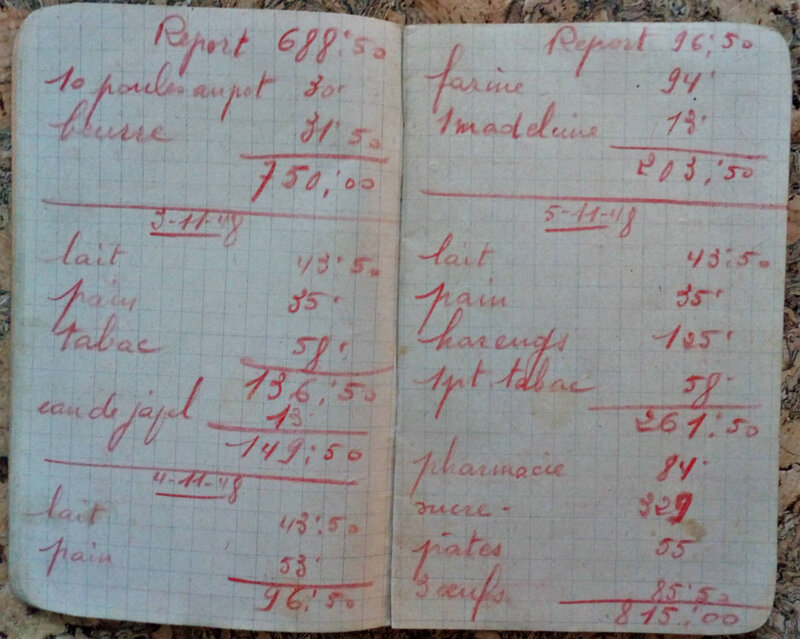 Report 688:50
10 poules au pot 30·
beurre 31:50
750:00
3-11-48
lait 43:50
pain 35·
tabac 58·
136:50
eau de javel 13·
149:50
4-11-48
lait 43:50
pain 53·
96:50
Report 96:50
farine 94·
1 madeleine 13·
203:50
5-11-48
lait 43:50
pain 35·
harengs 125·
1pt tabac 58·
261:50
pharmacie 84·
sucre - 329
pâtes 55
3 œufs 85:50
815:00